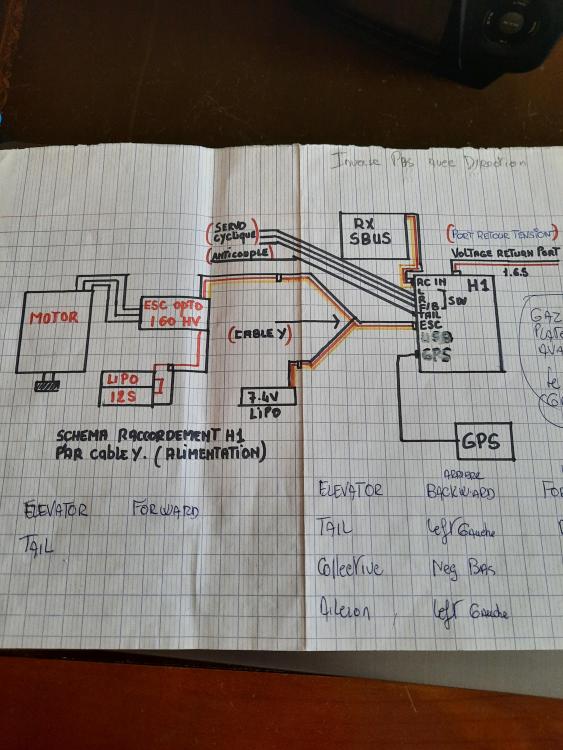 Inverse Pas avec Direction
(SERVO
CYCLIQUE)
(ANTICOUPLE)
RX
SBUS
(PORT RETOUR TENSION)
VOLTAGE RETURN PORT
1.6 S
RC IN
H1
R
E/B
SW
TAIL
ESC
USB
GPS
MOTOR
ESC OPTO
160 HV
(CABLE Y)
LIPO
12S
7.4V
LIPO
GPS
GAZ
PLATE
AVA
SCHEMA RACCORDEMENT H1
PAR CABLE Y. (ALIMENTATION)
ELEVATOR FORWARD
TAIL
ARRIERE
ELEVATOR BACKWARD FOR
TAIL Left Gauche
Collective Neg Bas
Aileron Left Gauche